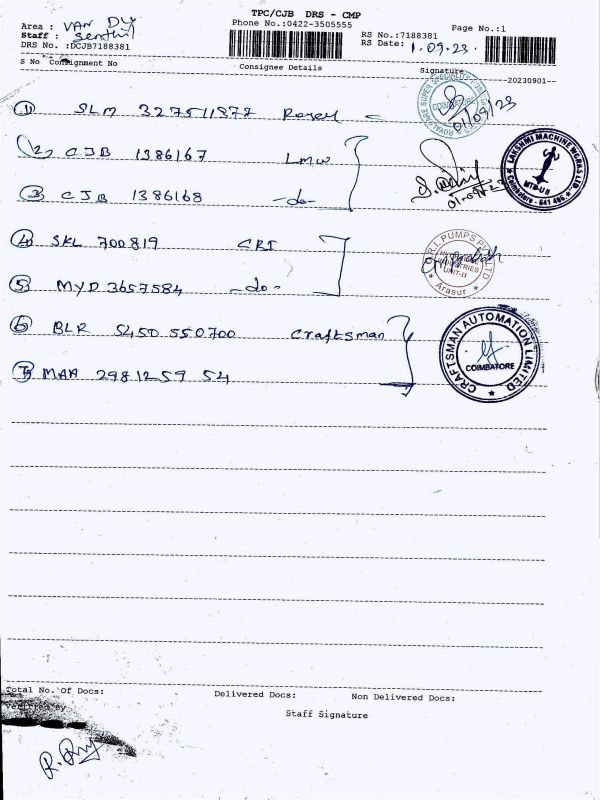 TPC/CJB DRS - CMP
Phone No.:0422-3505555
Page No.:1
Area : VAN
RS No.:7188381
Staff : Senthil
RS Date: 1.09.23.
DRS No. :DCJB7188381
S No Consignment No
Consignee Details
Signature
20230901
① SLM 327511877
01/09/23
COIMBATORE
② CJB 1386167 LMW
LAKSHMI MACHINE WORKS LTD
MTB-U II
Coimbatore - 641
③ CJB 1386168 -do-
④ SKL 700819 CRI
R.I. PUMPS PVT LTD
UNIT-II
Arasur
⑤ MYD 3657584 -do-
⑥ BLR 5450 550700 Craftsman
CRAFTSMAN AUTOMATION LIMITED
COIMBATORE
⑦ MAA 2981259 54
Total No. Of Docs:
Delivered Docs:
Non Delivered Docs:
Verified By
Staff Signature